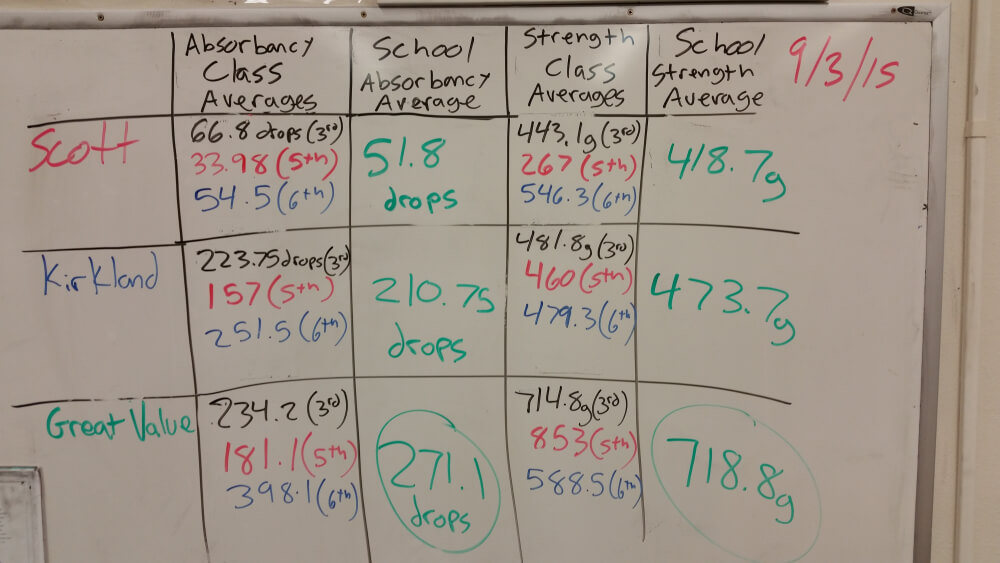 Absorbancy
Class
Averages
School
Absorbancy
Average
Strength
Class
Averages
School
Strength
Average
9/3/15
Scott
66.8 drops (3rd)
33.98 (5th)
54.5 (6th)
51.8
drops
443.1g (3rd)
267 (5th)
546.3 (6th)
418.7g
Kirkland
223.75 drops (3rd)
157 (5th)
251.5 (6th)
210.75
drops
481.8g (3rd)
460 (5th)
479.3 (6th)
473.7g
Great Value
234.2 (3rd)
181.1 (5th)
398.1 (6th)
271.1
drops
714.8g (3rd)
853 (5th)
588.5 (6th)
718.8g